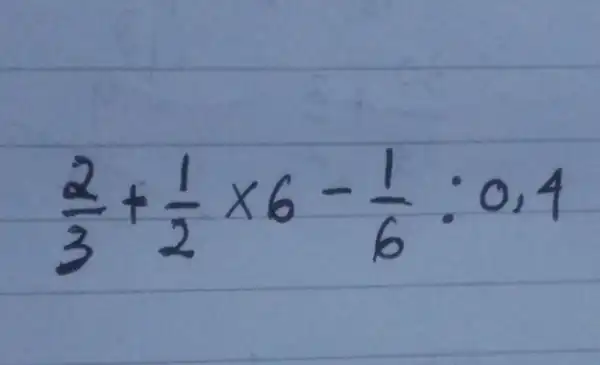 2/3 + 1/2 × 6 - 1/6 : 0,4